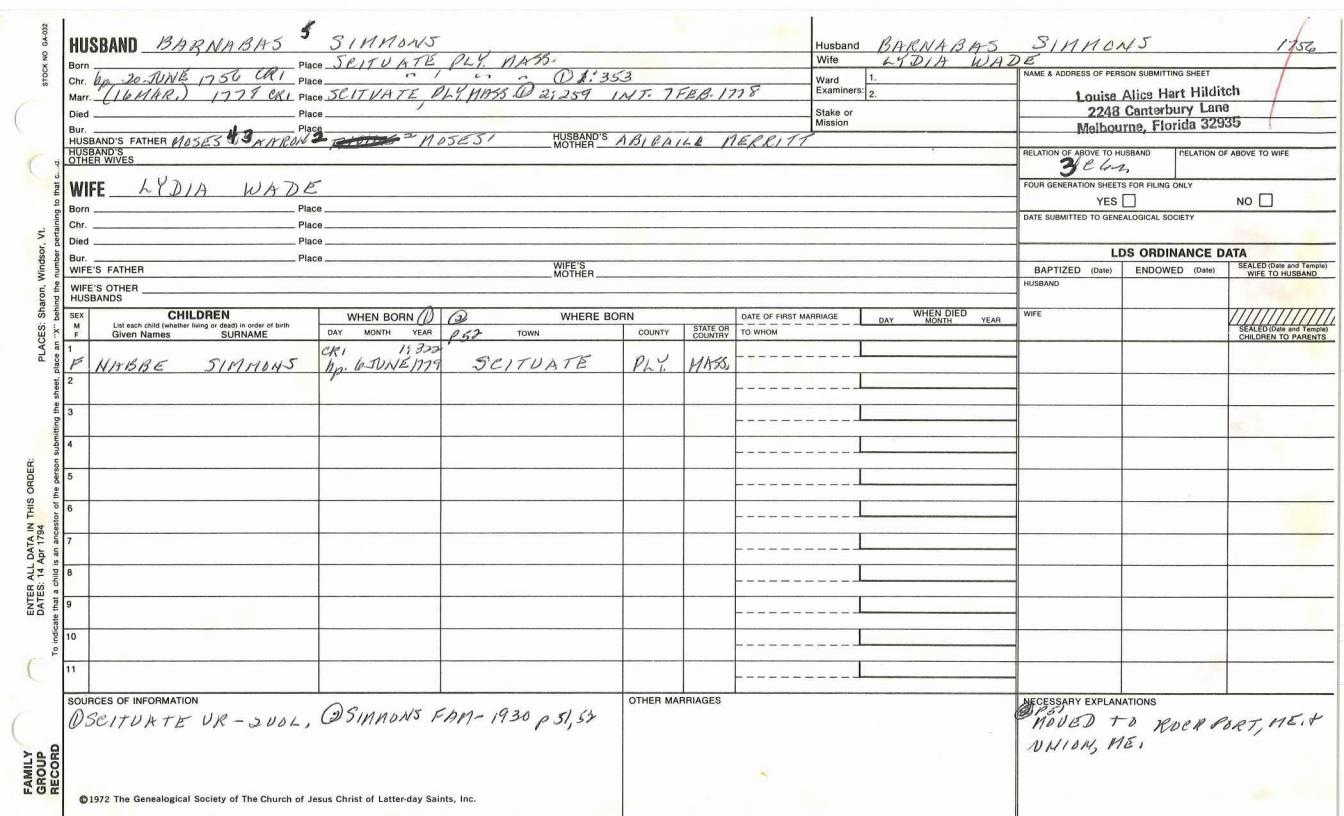 STOCK NO GA-032
HUSBAND BARNABAS 5 SIMMONS
Born Place SCITUATE PLY. MASS.
Chr. bp. 20-JUNE 1756 CR1 Place " , " " " ① 1:353
Marr. (16 MAR.) 1778 CR1 Place SCITUATE, PLY. MASS. ① 2:259 INT. 7 FEB. 1778
Died Place
Bur. Place
HUSBAND'S FATHER MOSES 4 3 AARON 2 2 MOSES 1 HUSBAND'S MOTHER ABIGAILE MERRITT
HUSBAND'S OTHER WIVES
Husband BARNABAS SIMMONS 1756
Wife LYDIA WADE
Ward Examiners: 1.
2.
Stake or Mission
NAME & ADDRESS OF PERSON SUBMITTING SHEET
Louise Alice Hart Hilditch
2248 Canterbury Lane
Melbourne, Florida 32935
RELATION OF ABOVE TO HUSBAND RELATION OF ABOVE TO WIFE
3
FOUR GENERATION SHEETS FOR FILING ONLY
YES NO
DATE SUBMITTED TO GENEALOGICAL SOCIETY
WIFE LYDIA WADE
Born Place
Chr. Place
Died Place
Bur. Place
WIFE'S FATHER WIFE'S MOTHER
WIFE'S OTHER HUSBANDS
LDS ORDINANCE DATA
BAPTIZED (Date) ENDOWED (Date) SEALED (Date and Temple) WIFE TO HUSBAND
HUSBAND
WIFE
SEALED (Date and Temple) CHILDREN TO PARENTS
SEX M F
CHILDREN
List each child (whether living or dead) in order of birth
Given Names SURNAME
WHEN BORN ①
DAY MONTH YEAR
② P52 WHERE BORN
TOWN COUNTY STATE OR COUNTRY
DATE OF FIRST MARRIAGE
TO WHOM
WHEN DIED
DAY MONTH YEAR
1 CR1 1:322
F NABBE SIMMONS bp. 6 JUNE 1779 SCITUATE PLY. MASS.
2
3
4
5
6
7
8
9
10
11
SOURCES OF INFORMATION
① SCITUATE VR-2 VOL, ② SIMMONS FAM-1930 p 51, 52
OTHER MARRIAGES
NECESSARY EXPLANATIONS
② P51
MOVED TO ROCKPORT, ME. +
UNION, ME.
©1972 The Genealogical Society of The Church of Jesus Christ of Latter-day Saints, Inc.
FAMILY
GROUP
RECORD
ENTER ALL DATA IN THIS ORDER:
DATES: 14 Apr 1794
PLACES: Sharon, Windsor, Vt.
To indicate that a child is an ancestor of the person submitting the sheet, place an "X" behind the number pertaining to that